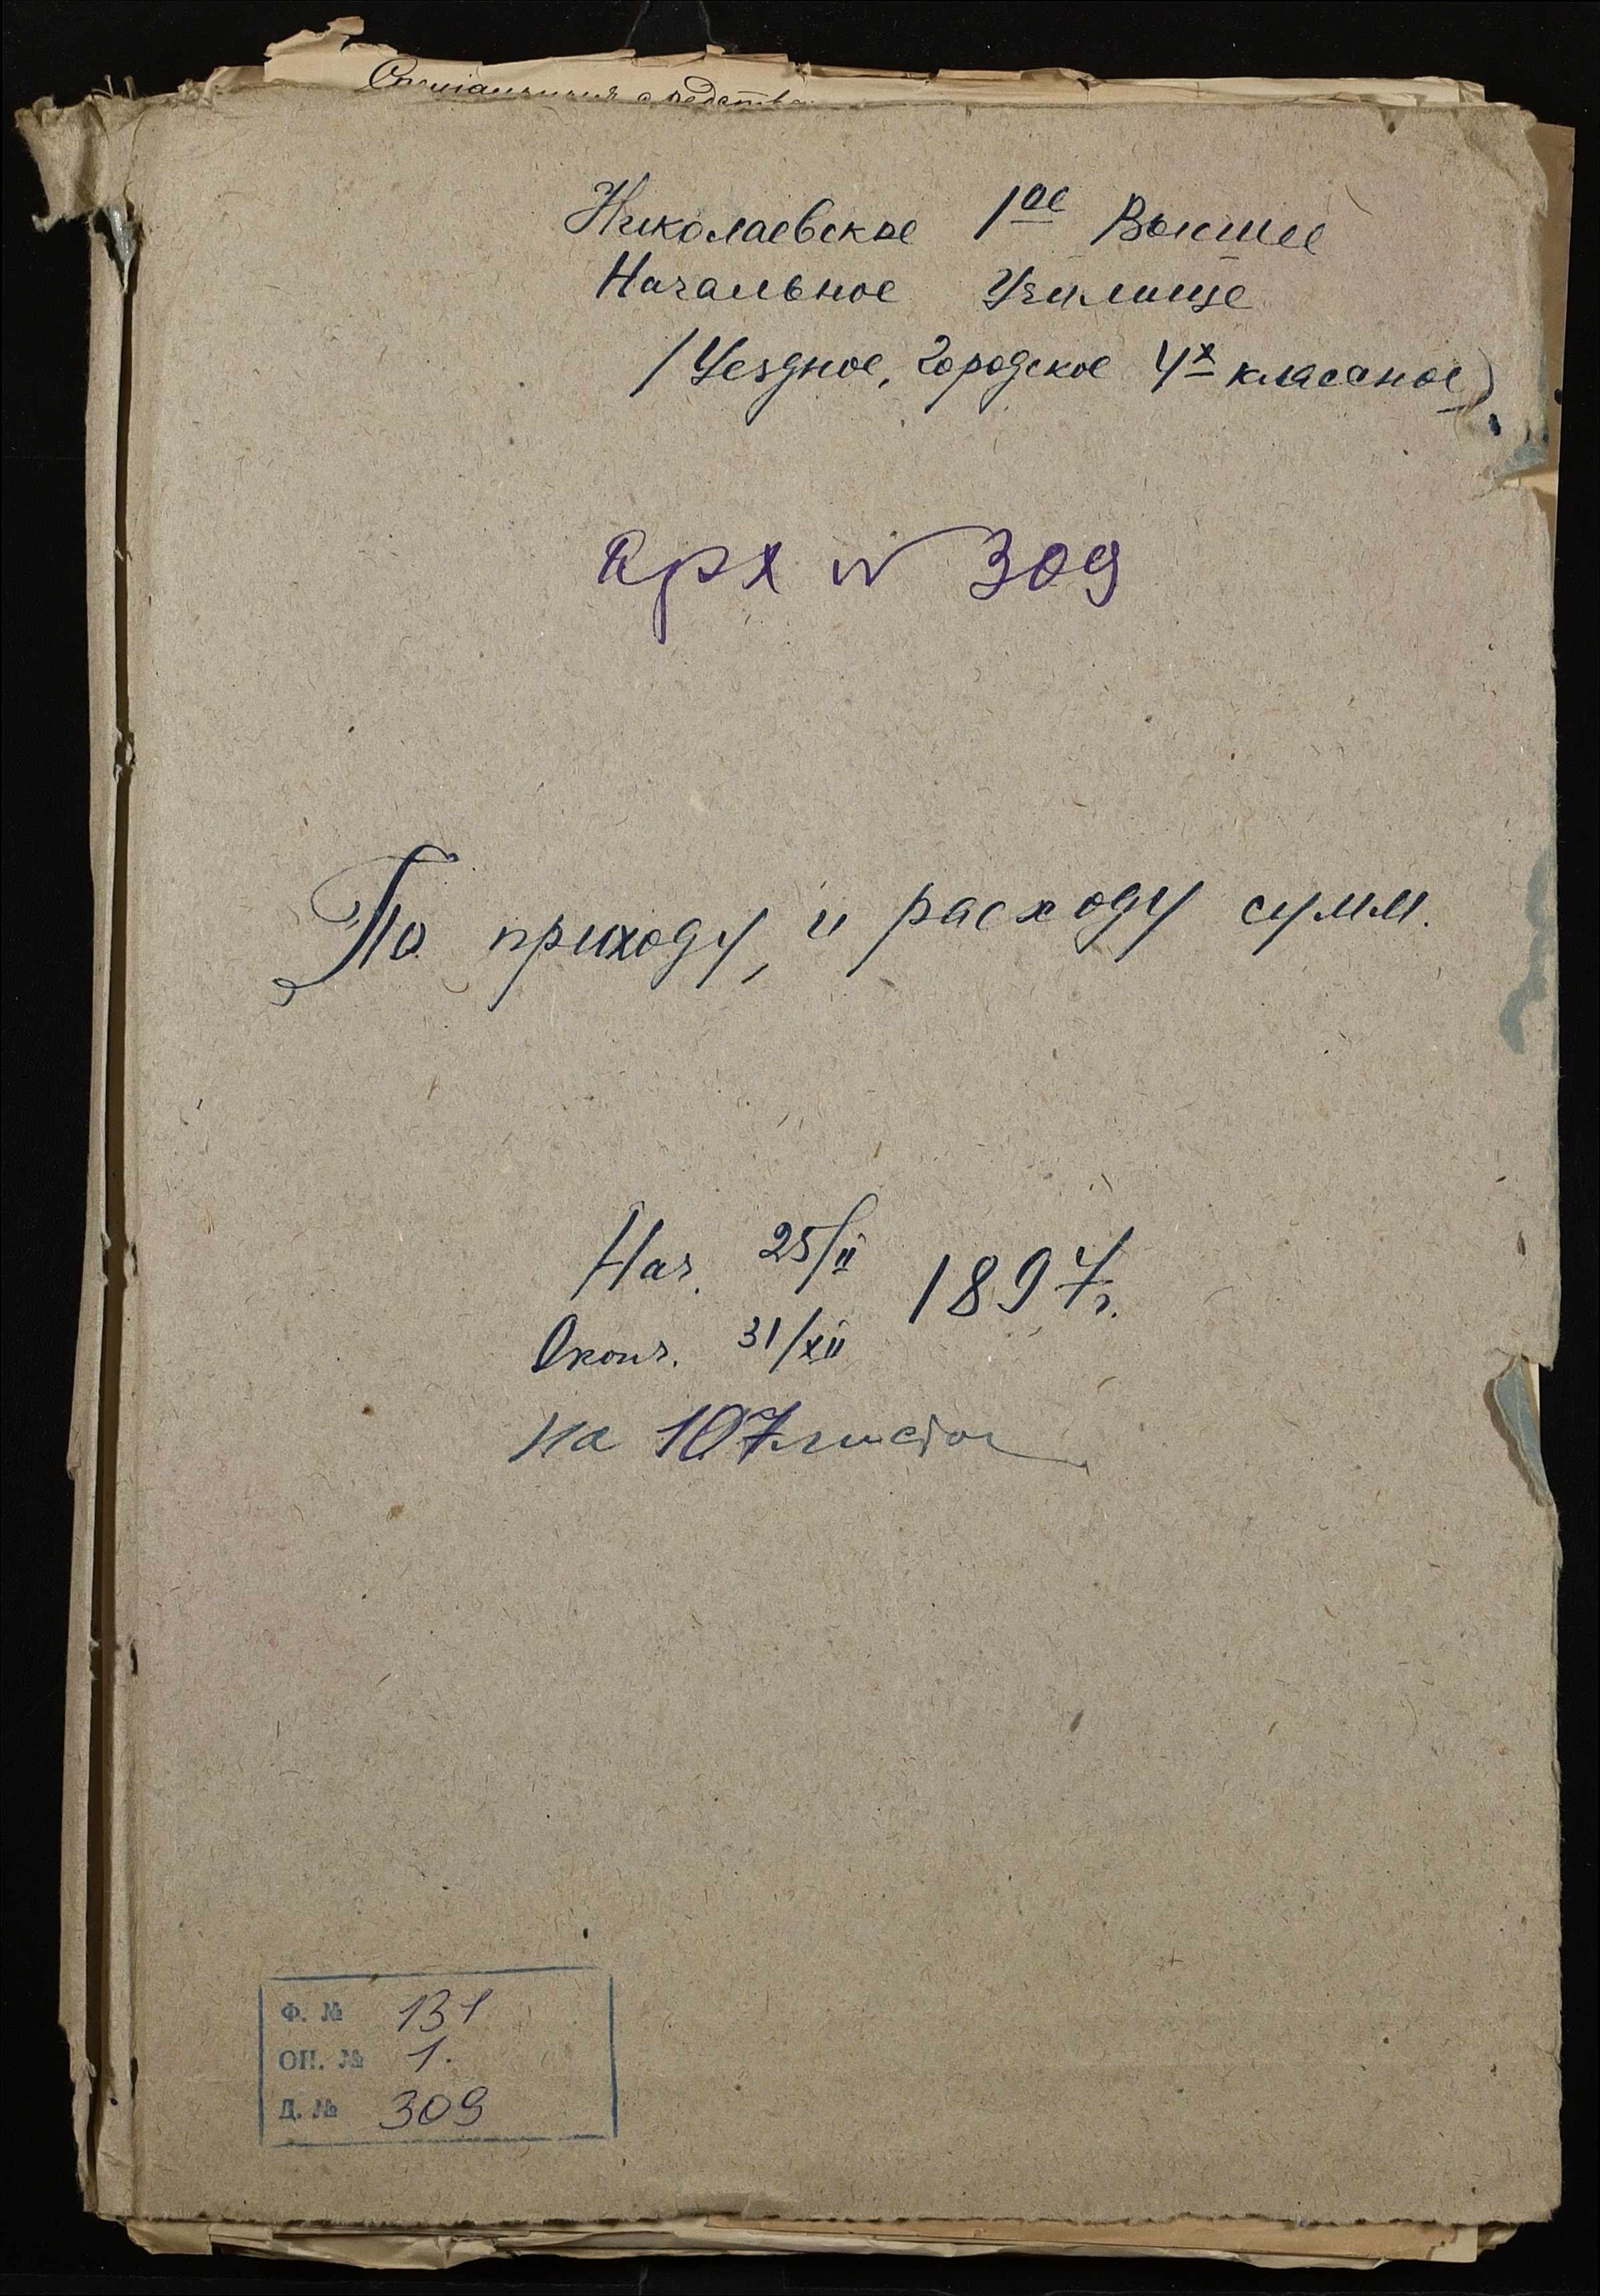 Николаевское 1ое Высшее
Начальное Училище
(Уездное, Городское 4х классное)
Арх № 309
По приходу, и расходу сумм.
Нач. 25/II 1897г.
Оконч. 31/XII
на 107 листах
Ф. № 131
ОП. № 1.
Д. № 309